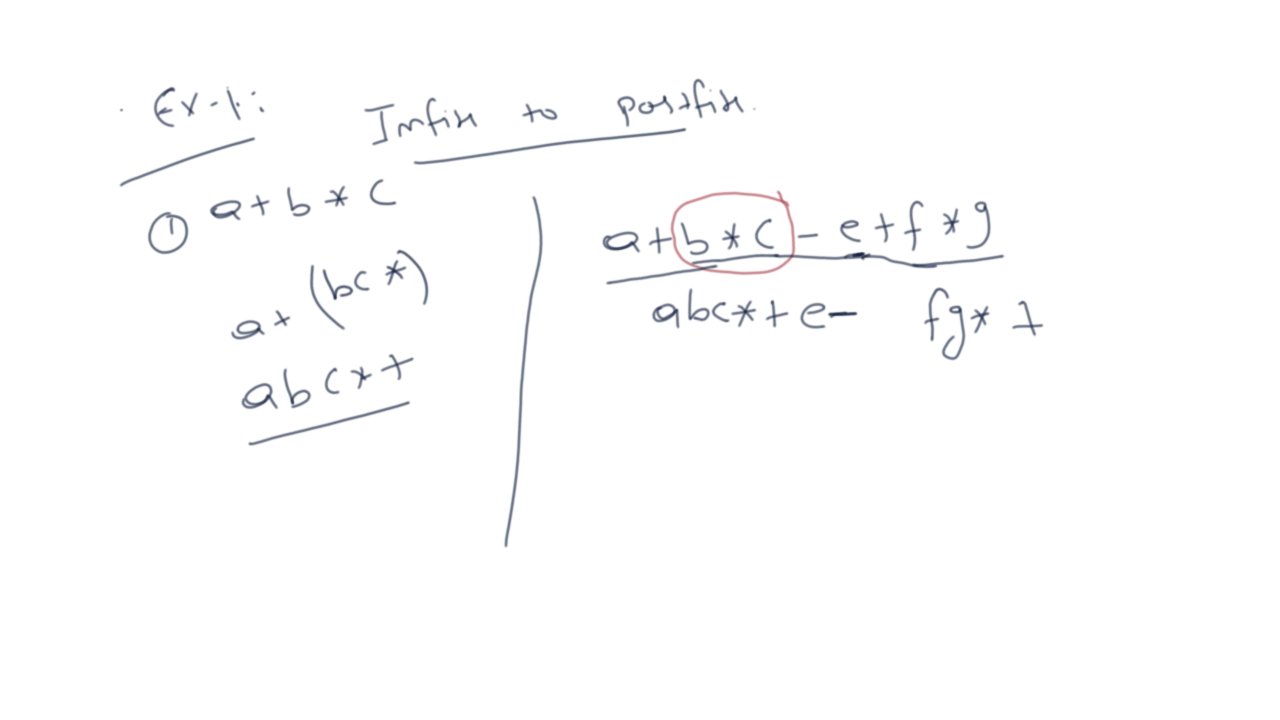 Ex-1: Infix to postfix.
① a + b * c
a + (bc *)
abc * +
a + b * c - e + f * g
abc * + e - fg * +